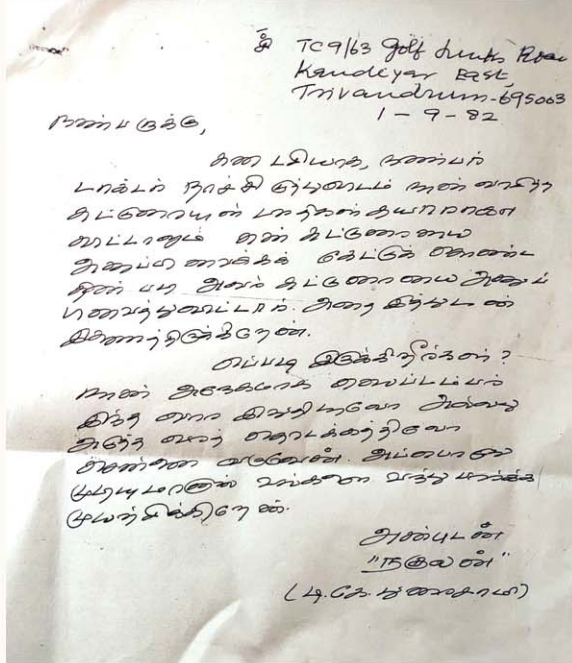 TC9/63 Golf Links Road
Kaudiyar East,
Trivandrum-695003
1-9-82
நண்பருக்கு,
கடைசியாக, நண்பர்
டாக்டர் நாச்சிமுத்துவிடம் நான் வாசித்த
கட்டுரையின் பிரதிகள் தயாராகி
விட்டாலும் என் கட்டுரையை
அனுப்பிவைக்கக் கேட்டுக் கொண்ட
தின் படி அவர் கட்டுரையை அனுப்
பிவைத்துவிட்டார். அதை இத்துடன்
இணைத்திருக்கிறேன்.
எப்படி இருக்கிறீர்கள்?
நான் அநேகமாக செப்டம்பர்
இந்த வார இறுதியிலோ அல்லது
அடுத்த வாரத் தொடக்கத்திலோ
சென்னை வருவேன். அப்பொழுது
முடியுமானால் உங்களை வந்து பார்க்க
முயற்சிக்கிறேன்.
அன்புடன்
"நகுலன்"
(டி.கே.துரைசாமி)